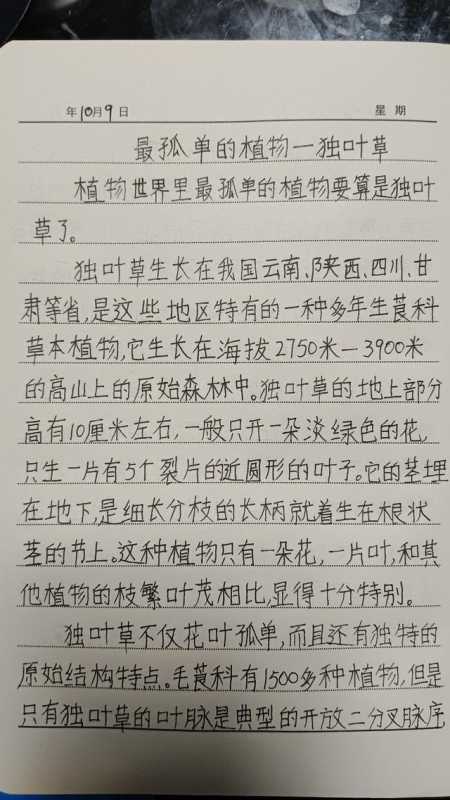 年10月9日 星期
最孤单的植物—独叶草
植物世界里最孤单的植物要算是独叶
草了。
独叶草生长在我国云南、陕西、四川、甘
肃等省,是这些地区特有的一种多年生莨科
草本植物,它生长在海拔2750米—3900米
的高山上的原始森林中。独叶草的地上部分
高有10厘米左右,一般只开一朵淡绿色的花,
只生一片有5个裂片的近圆形的叶子。它的茎埋
在地下,是细长分枝的长柄就着生在根状
茎的节上。这种植物只有一朵花,一片叶,和其
他植物的枝繁叶茂相比,显得十分特别。
独叶草不仅花叶孤单,而且还有独特的
原始结构特点。毛莨科有1500多种植物,但是
只有独叶草的叶脉是典型的开放二分叉脉序